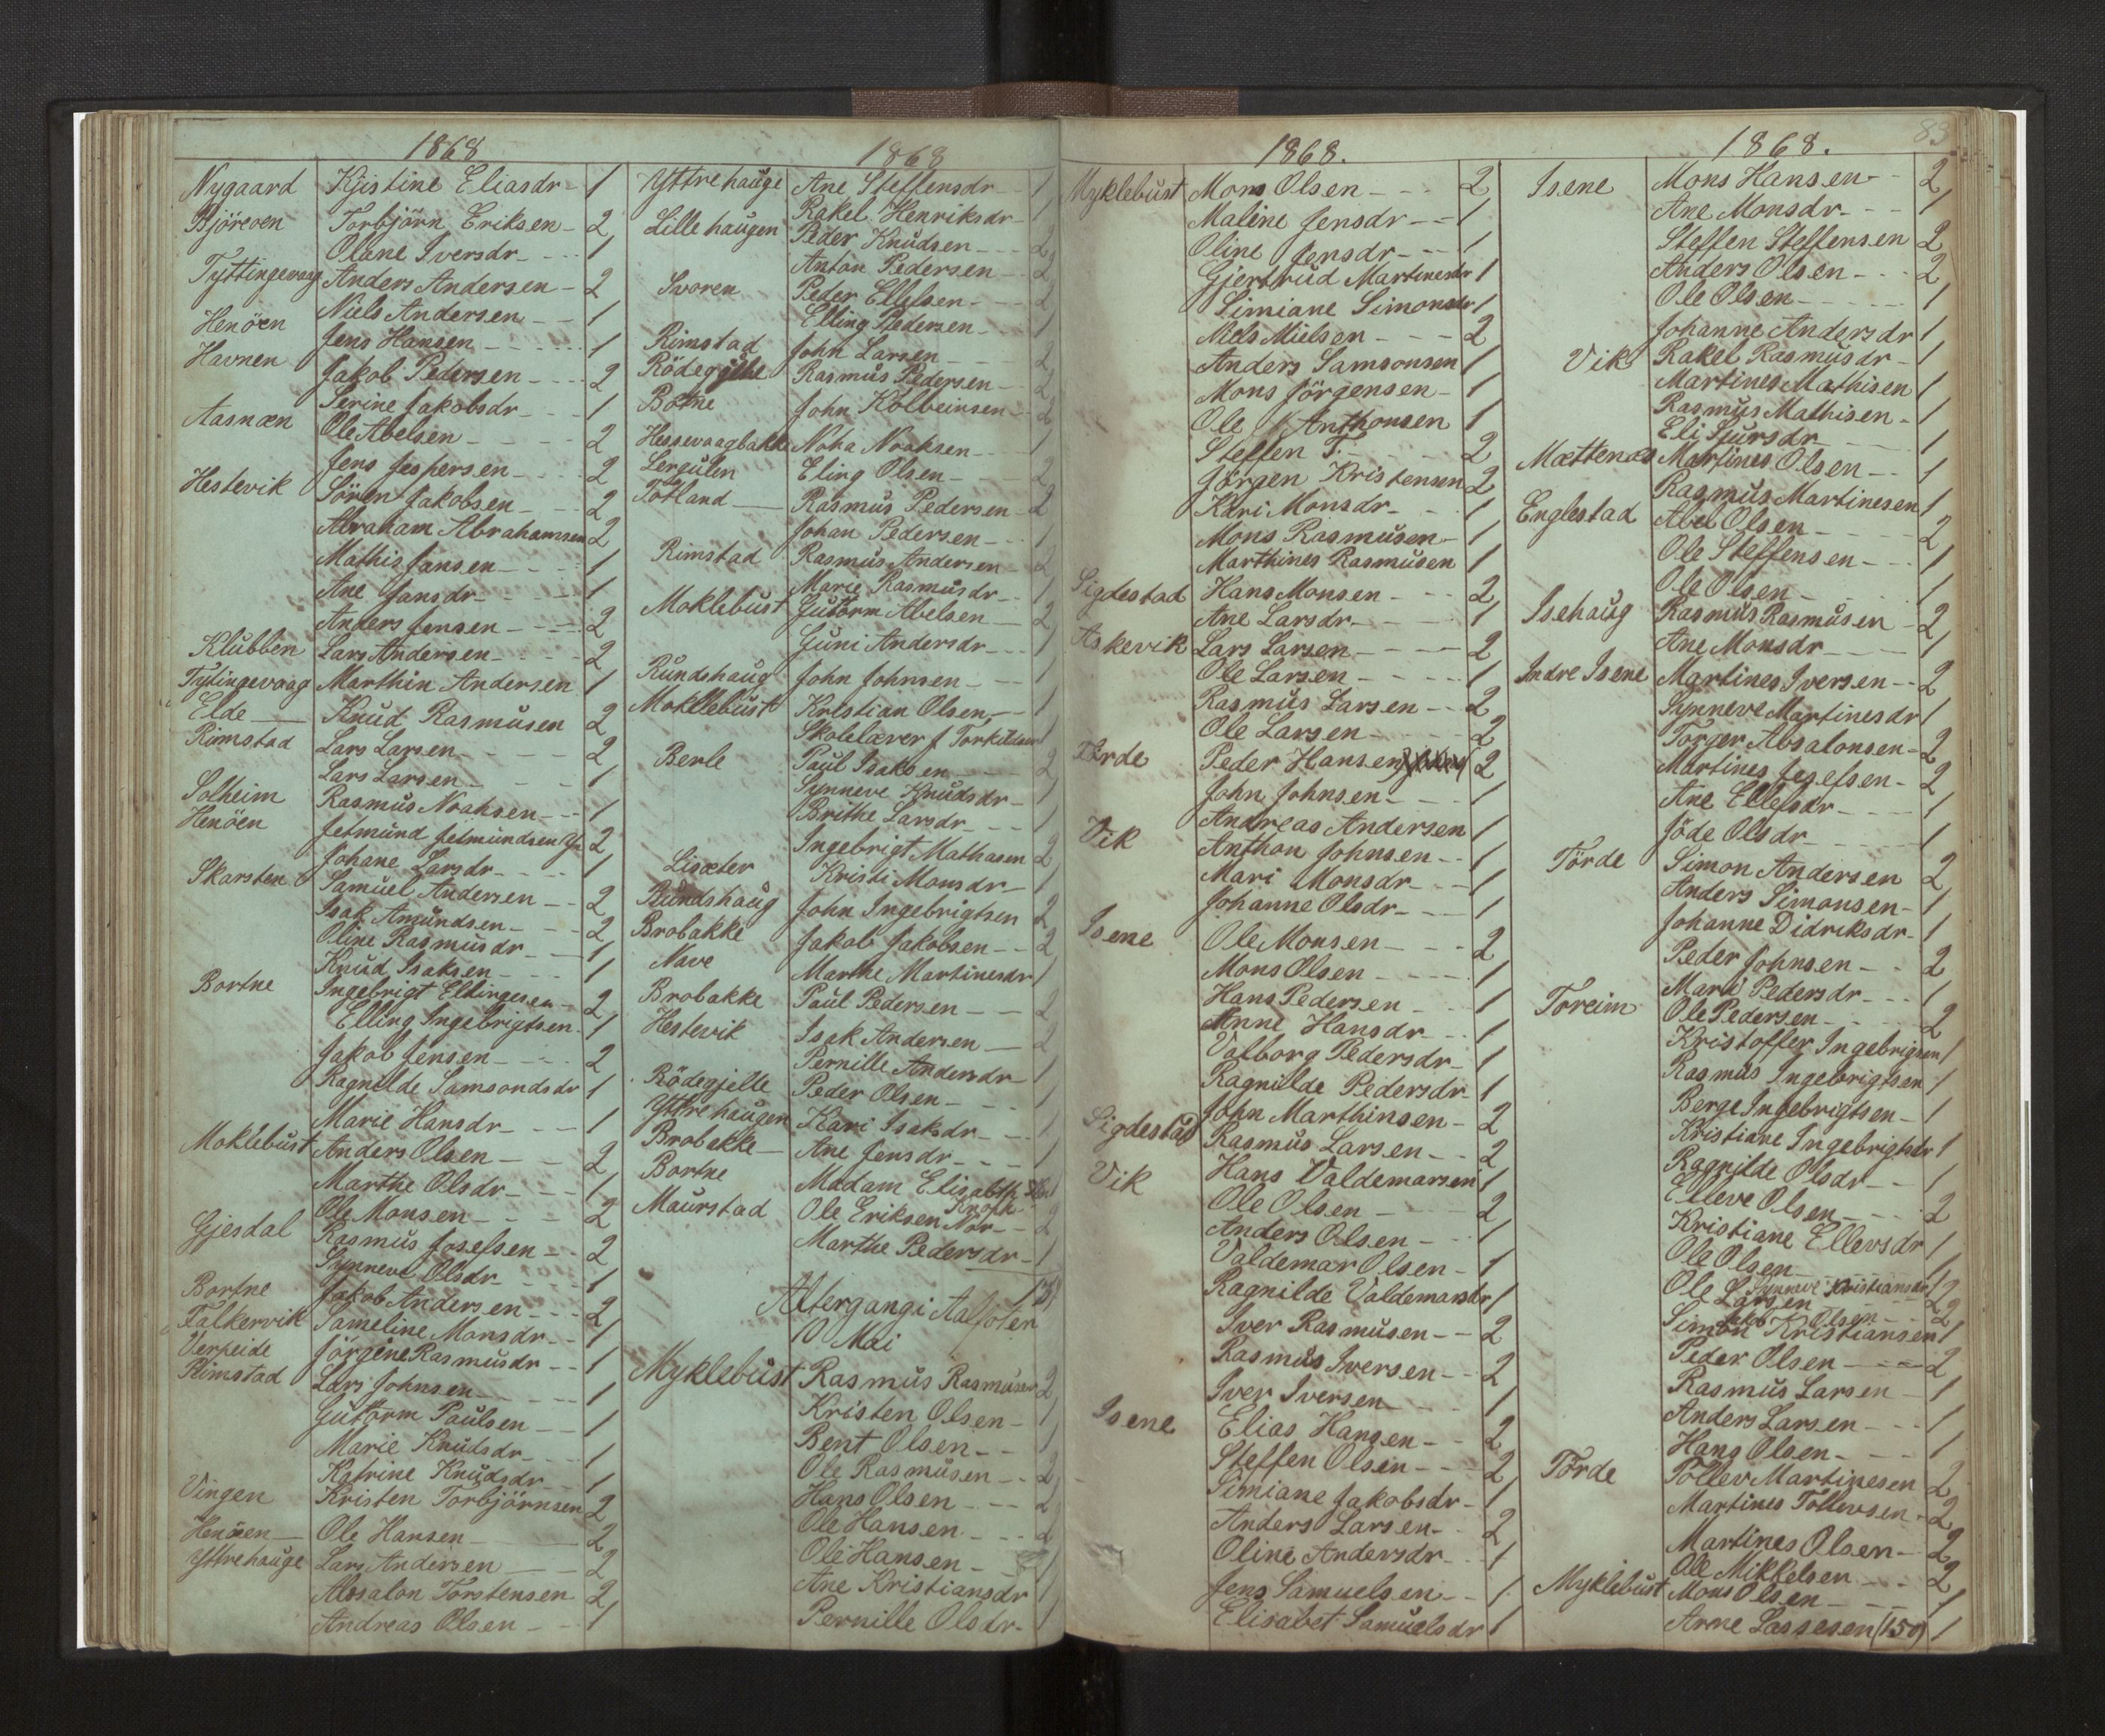 1868
Nygaard Kjistine Eliasdr - 1
Björeven Torbjörn Eriksen - 2
Olane Iversdr - 1
Tyttingevaag Anders Andersen - 2
Niels Andersen - 1
Henöen Jens Hansen - 1
Havnen Jakob Pedersen - 2
Serine Jakobsdr - 1
Aasnæn Ole Abelsen - 2
Jens Jespersen - 2
Hestevik Sören Jakobsen - 2
Abraham Abrahamsen 2
Mathis Jansen - 1
Ane Jansdr - 1
Anders Jensen - 2
Klubben Lars Andersen - 2
Tytingevaag Marthin Andersen 1
Elde Knud Rasmusen 2
Rimstad Lars Larsen - 2
Lars Larsen - 1
Solheim Rasmus Noahsen - 1
Henöen Jetmund Jetmundsen 2
Johane Larsdr - 1
Skarsten Samuel Andersen - 2
Isak Amundsen - 2
Oline Rasmusdr - 1
Knud Isaksen - 1
Bortne Ingebrigt Ellingesen - 2
Elling Ingebrigtsen 1
Jakob Jensen - 2
Ragnilde Samsondsdr 1
Marie Hansdr - 1
Moklebust Anders Olsen - 2
Marthe Olsdr - 1
Ole Monsen - 2
Gjesdal Rasmus Josefsen - 2
Synneve Olsdr - 1
Bortne Jakob Andersen - 2
Falkervik Sameline Monsdr - 1
Verpeide Jörgine Rasmusdr - 1
Rimstad Lars Johnsen - 1
Gutorm Paulsen - 1
Marie Knudsdr - 1
Katrine Knudsdr - 1
Vingen Kristen Torbjörnsen 2
Henöen Ole Hansen - 2
Yttrehauge Lars Andersen - 2
Absalon Torstensen 2
Andreas Olsen - 1
1868
Yttrehauge Ane Steffensdr - 1
Rakel Henriksdr - 1
Lillehaugen Peder Knudsen - 2
Anton Pedersen - 2
Svoren Peder Ellefsen - 2
Elling Pedersen - 1
Rimstad John Larsen 2
Rödegjelle Rasmus Pedersen - 2
Botne John Kolbeinsen - 2
Hessevaagbakke Noha Noahsen - 1
Lergulen Eling Olsen - 2
Totland Rasmus Pedersen - 2
Johan Pedersen - 1
Rimstad Rasmus Andersen 2
Marie Rasmusdr - 1
Moklebust Gutorm Abelsen - 2
Guni Andersdr - 1
Rundshaug John Johnsen - 1
Moklebust Kristian Olsen - 1
Skolelærer J Torkildsen 1
Berle Paul Isaksen 2
Synneve Knudsdr - 1
Brithe Larsdr - 1
Ingebrigt Mathasen 2
Lisæter Kristi Monsdr - 1
Rundshaug John Ingebrigtsen 2
Brobakke Jakob Jakobsen - 2
Nave Marthe Martinesdr 1
Brobakke Paul Pedersen - 2
Hestevik Isak Andersen - 2
Pernille Andersdr - 1
Rödegjelle Peder Olsen - 1
Yttrehaugen Kari Isaksdr - 1
Brobakke Ane Jensdr - 1
Bortne Madam Elisabth
Maurstad Ole Eriksen Nor - 2
Marthe Pedersdr - 1
Altergang i Aalfoten
10 Mai
Myklebust Rasmus Rasmusen 2
Kristen Olsen - 1
Bent Olsen - 1
Ole Rasmusen - 2
Hans Olsen - 2
Ole Hansen - 2
Ole Hansen - 1
Ane Kristiansdr 1
Pernille Olsdr - 1
1868.
Myklebust Mons Olsen - 2
Maline Jensdr - 1
Oline Jensdr - 1
Gjertrud Martinesdr 1
Simiane Simonsdr 1
Niels Nielsen - 2
Anders Samsonsen 1
Mons Jörgensen - 1
Ole Anthonsen 1
Steffen T. - 2
Jörgen Kristensen 2
Kari Monsdr - 1
Mons Rasmusen - 1
Marthines Rasmusen 1
Sigdestad Hans Monsen - 2
Ane Larsdr - 1
Askevik Lars Larsen - 2
Ole Larsen - 1
Rasmus Larsen - 2
Ole Larsen - 2
Förde Peder Hansen 2
John Johnsen - 1
Andreas Andersen 1
Vik Anthon Johnsen - 1
Mari Monsdr - 1
Johanne Olsdr - 1
Isene Ole Monsen - 2
Mons Olsen - 1
Hans Pedersen - 1
Anne Hansdr - 1
Valborg Pedersdr - 1
Ragnilde Pedersdr 1
John Marthinsen - 2
Sigdestad Rasmus Larsen - 2
Vik Hans Valdemarsen 1
Ole Olsen - 2
Anders Olsen - 1
Valdemar Olsen - 1
Ragnilde Valdemarsdr 1
Iver Rasmusen - 2
Rasmus Iversen - 2
Iver Iversen - 1
Isene Elias Hansen - 2
Steffen Olsen - 2
Simiane Jakobsdr - 1
Anders Larsen - 2
Oline Andersdr - 1
Jens Samuelsen - 1
Elisabet Samuelsdr 1
1868. 83
Isene Mons Hansen - 2
Ane Monsdr - 1
Steffen Steffensen 2
Anders Olsen - 2
Ole Olsen - 1
Johanne Andersdr 1
Vik Rakel Rasmusdr - 1
Martines Mathisen 1
Rasmus Mathisen - 1
Eli Sjursdr - 1
Mættenæs Martines Olsen - 1
Rasmus Martinesen 1
Englestad Abel Olsen - 2
Ole Steffensen - 1
Ole Olsen - 1
Isehaug Rasmus Rasmusen - 2
Ane Monsdr - 1
Indre Isene Martines Iversen - 2
Synneve Martinesdr 1
Torger Absalonsen - 2
Martines Josefsen - 2
Ane Ellefsdr - 1
Jöde Olsdr - 1
Förde Simon Andersen 2
Anders Simonsen - 1
Johanne Didriksdr - 1
Peder Johnsen - 2
Mari Pedersdr - 1
Foreim Ole Pedersen - 2
Kristoffer Ingebrigsen 1
Rasmus Ingebrigtsen 1
Berge Ingebrigtsen - 1
Kristiane Ingebrigtsdr 1
Ragnilde Olsdr - 1
Elleve Olsen - 2
Kristiane Ellevsdr 1
Ole Olsen - 1
Synneve Kristiansdr 1
Ole Larsen 2
Jakob Olsen - 2
Simon Kristiansen 1
Peder Olsen - 2
Rasmus Larsen - 1
Anders Larsen - 1
Hans Olsen - 1
Förde Tollev Martinesen 2
Martines Tollevsen - 2
Martines Olsen - 2
Ole Mikkelsen - 2
Myklebust Mons Olsen - 1
Arne Lassesen (150) 1